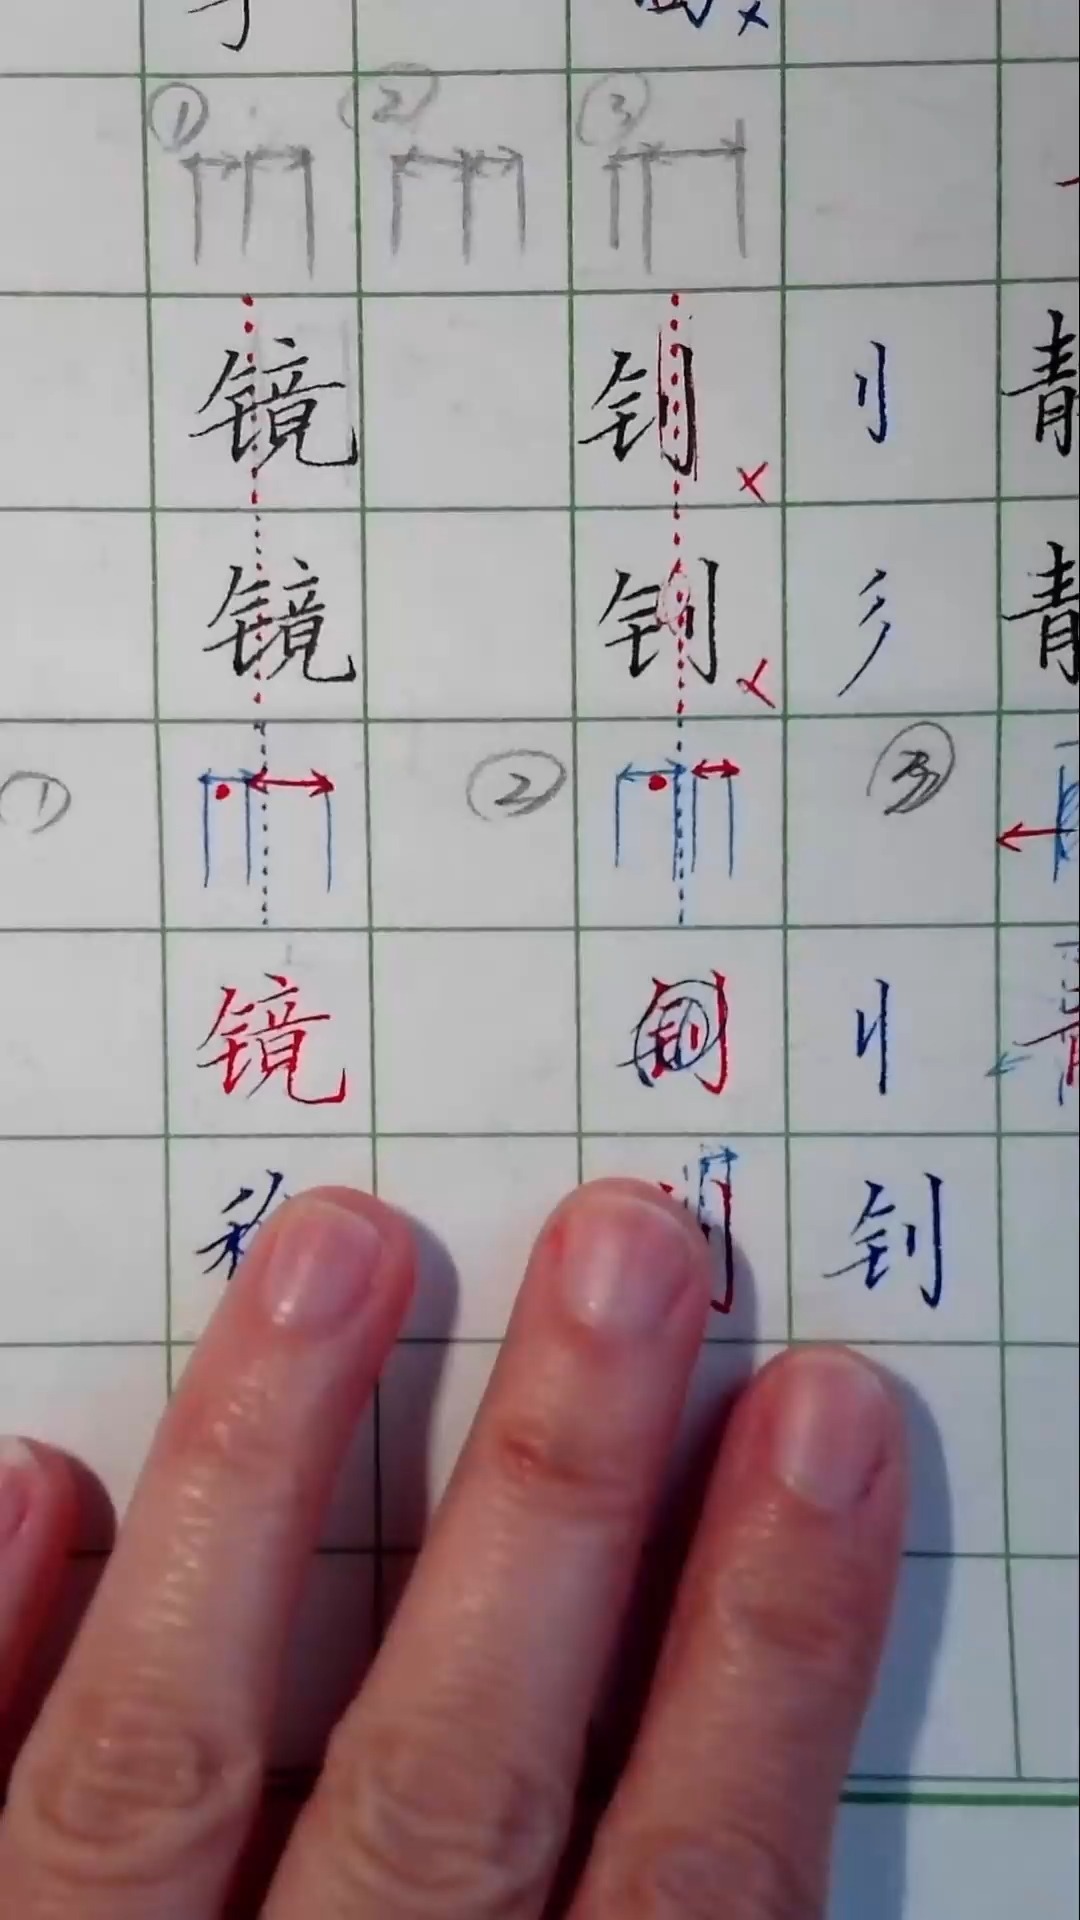 ① ② ③
镜 钊 刂
×
镜 钊 彡
×
① ② ③
镜 钊 刂
钊